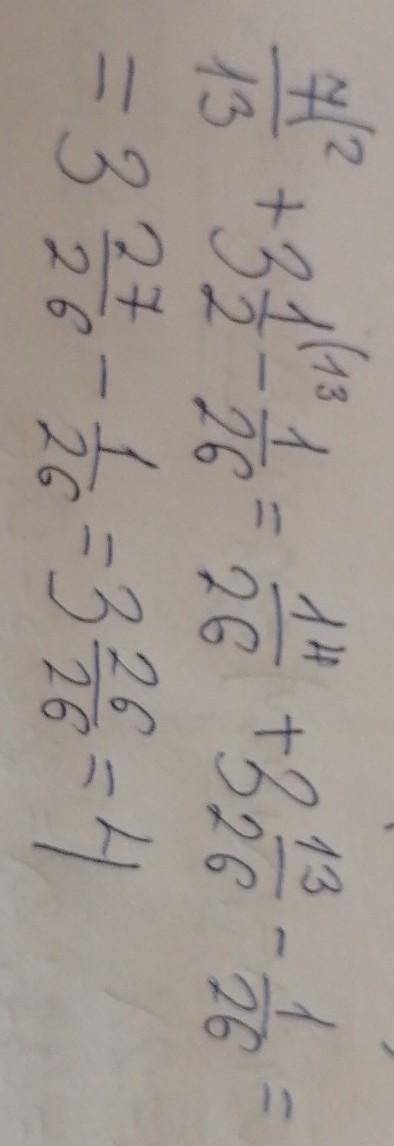 7(2/13 + 3 1(13/2 - 1/26 = 14/26 + 3 13/26 - 1/26 =
= 3 27/26 - 1/26 = 3 26/26 = 4